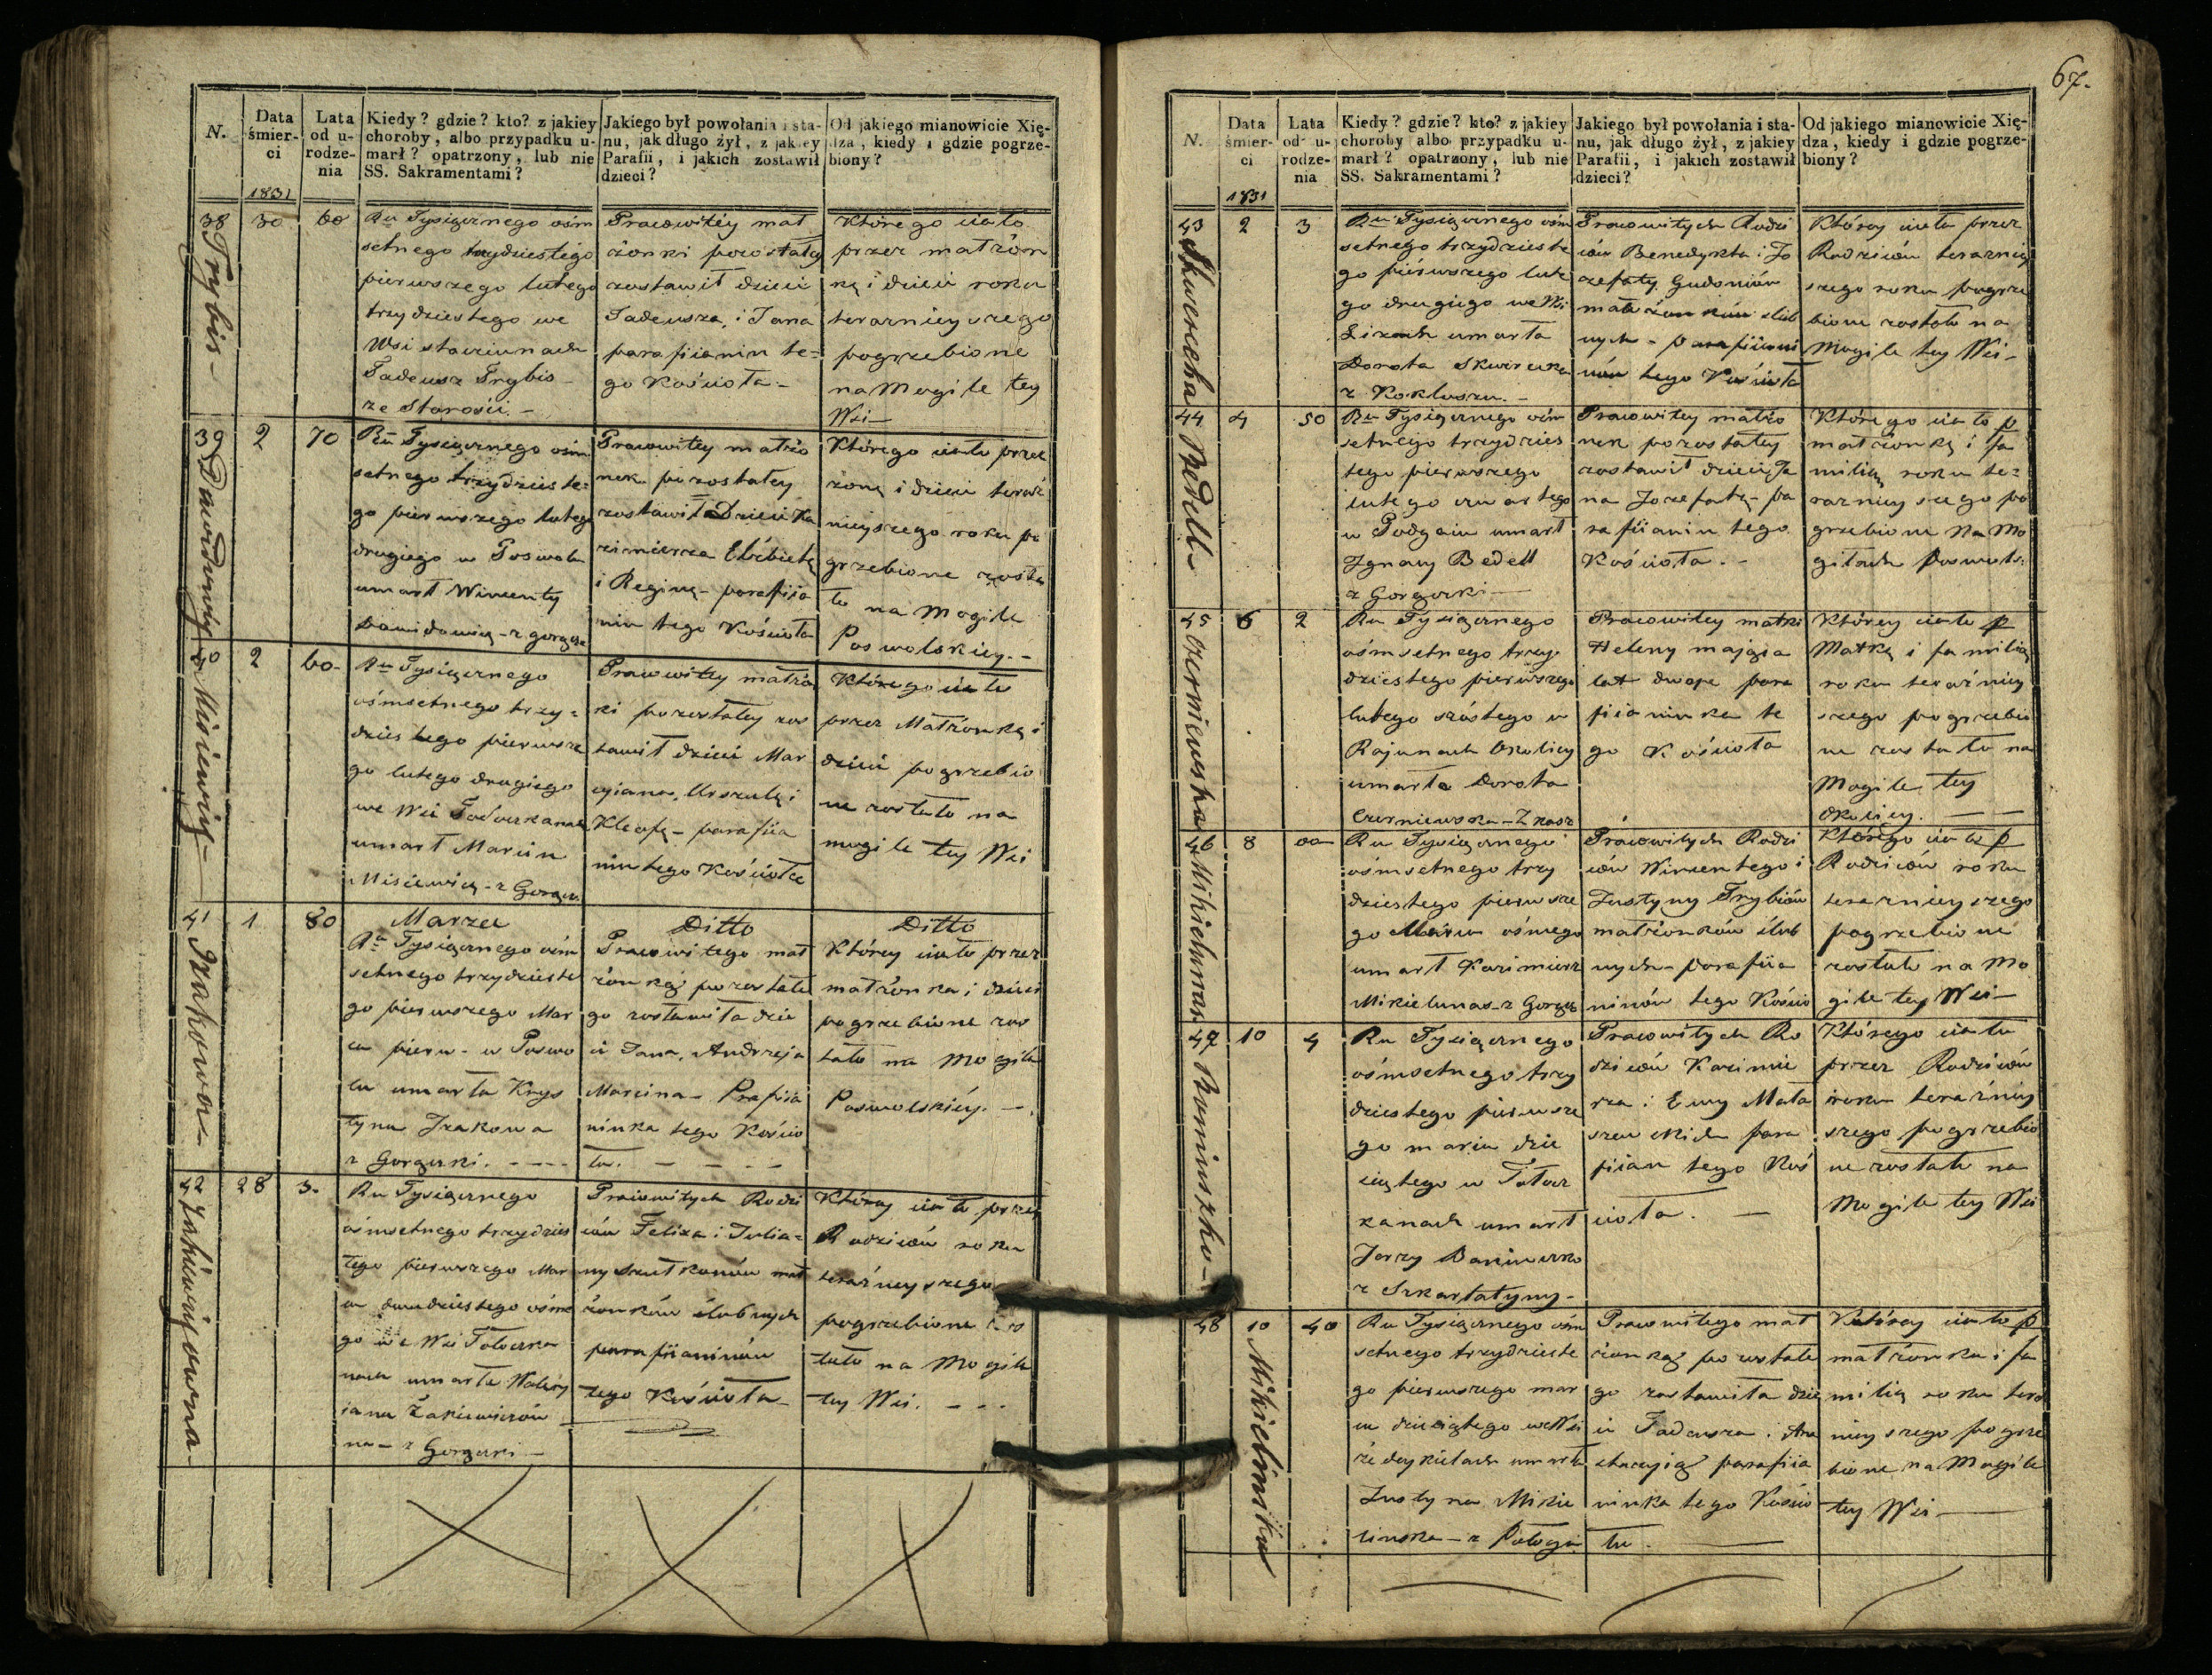 N.
Data śmier-
ci
1831
Lata
od u-
rodze-
nia
Kiedy? gdzie? kto? z jakiey
choroby, albo przypadku u-
marł? opatrzony, lub nie
SS. Sakramentami?
Jakiego był powołania i sta-
nu, jak długo żył, z jakiey
Parafii, i jakich zostawił
dzieci?
Od jakiego mianowicie Xię-
dza, kiedy i gdzie pogrze-
biony?
38 Trybis
30
60
Ru Tysiącznego ośm
setnego trzydziestego
pierwszego lutego
trzydziestego we
Wsi
Tadeusz Trybis
ze Starości. -
Pracowitéy mał
żonki pozostałey
zostawił dzieci
Tadeusza, i Jana
parafiianin te=
go Kościoła -
Którego ciało
przez małżon
kę i dzieci roku
teraznieyszego
pogrzebione
na Mogile tey
Wsi -
39 Dawidowicz
2
70
Ru Tysiącznego ośm
setnego trzydzieste=
go pierwszego lutego
drugiego w Poswolu
umarł Wincenty
Dawidowicz - z gorącz
Pracowitey małżo
nek pozostałey
zostawił Dzieci Ka
zimierza Elżbietę
i Reginę - parafiia
nin tego Kościoła
Którego ciało przez
żonę i dzieci teraź
nieyszego roku po
grzebione zosta
ło na Mogile
Poswolskiey. -
40 Misiewicz
2
60-
Ru Tysiącznego
ośmsetnego trzy=
dziestego pierwsze
go lutego drugiego
we Wsi
umarł Marcin
Misiewicz - z Gorącz
Pracowitey małżon
ki pozostałey zos
tawił dzieci Mar
cyiana, Urszulę i
Kleofę - parafiia
nin tego Kościoła
Którego ciało
przez Małżonkę i
dzieci pogrzebio
ne zostało na
mogile tey Wsi
41
1
80
Marzec
Ru Tysiącznego ośm
setnego trzydzieste
go pierwszego Mar
ca pierw- w Poswo
lu umarła Krys
tyna
z Gorączki. - - - -
Ditto
Pracowitego mał
żonka pozostałe
go zostawiła dzie
ci Jana, Andrzeja
Marcina - Prafiia
ninka tego Kościo
ła. - - - -
Ditto
Którey ciało przez
małżonka i dzieci
pogrzebione zos
tało na Mogile
Poswolskiéy. -
42
28
3.
Ru Tysiącznego
ośmsetnego trzydzies
tego pierwszego Mar
ca dwudziestego ósme
go we Wsi
umarła
na - z Gorączki -
Pracowitych Rodzi
ców Felixa i Julia=
ny mał
żonków ślubnych
parafiianinów
tego Kościoła -
Którey ciało przez
Rodziców roku
teraźneyszego
pogrzebione zos
tało na Mogile
tey Wsi. - - -
67.
N.
Data
śmier-
ci
1831
Lata
od u-
rodze-
nia
Kiedy? gdzie? kto? z jakiey
choroby albo przypadku u-
marł? opatrzony, lub nie
SS. Sakramentami?
Jakiego był powołania i sta-
nu, jak długo żył, z jakiey
Parafii, i jakich zostawił
dzieci?
Od jakiego mianowicie Xię-
dza, kiedy i gdzie pogrze-
biony?
43
2
3
Ru Tysiącznego ośm
setnego trzydzieste
go piérwszego lute
go drugiego we Wsi
umarła
Dorota
z Kokluszu. -
Pracowitych Rodzi
ców Benedykta i Jo
zefaty
małżonków ślub
nych - parafiiani
nów tego Kościoła
Którey ciało przez
Rodziców teraźniey
szego roku pogrze
bione zostało na
Mogile tey Wsi -
44 Bedell
4
50
Ru Tysiącznego ośm
setnego trzydzies
tego pierwszego
lutego czwartego
w umarł
Ignacy Bedell
z Gorączki -
Pracowitey małżo
nek pozostałey
zostawił dzieci Ja
na Jozefatę - pa
rafiianin tego
Kościoła. -
Którego ciało p
małżonkę i fa
milią roku te=
raznieyszego po
grzebione na Mo
giłach Poswols:
45 Czerniewska
6
2
Ru Tysiącznego
ośmsetnego trzy
dziestego pierwszego
lutego szóstego w
Rajunach Okolicy
umarła Dorota
Czerniewska - Z kasz
Pracowitey matki
Heleny mająca
lat dwoje para
fiianinka te
go Kościoła
Którey ciało p
Matkę i familią
roku teraźniey
szego pogrzebio
ne zostało na
Mogile tey
Okolicy. - -
46 Mikielunas
8
Ru Tysiącznego
ośmsetnego trzy
dziestego pierwsze
go Marca ośmego
umarł Kazimierz
Mikielunas - z Gorącz
Pracowitych Rodzi
ców Wincentego i
Justyny Trybiów
małżonków ślub
nych - parafiia
ninów tego Kościo
Którego ciało p
Rodziców roku
teraznieyszego
pogrzebione
zostało na Mo
gile tey Wsi -
47
10
4
Ru Tysiącznego
ośmsetnego trzy
dziestego pierwsze
go marca dzie
siątego w
umarł
Jerzy
z Szkarlatyny -
Pracowitych Ro
dziców Kazimie
rza i Ewy
para
fiian tego Koś
cioła. -
Którego ciało
przez Rodziców
roku teraźniey
szego pogrzebio
ne zostało na
Mogile tey Wsi
48
10
40
Ru Tysiącznego ośm
setnego trzydzieste
go pierwszego mar
ca dziesiątego we Wsi
umarła
Justyna Mikie
Pracowitego mał
żonka pozostałe
go zostawiła dzie
ci Tadeusza. Ana
stazyią parafiia
ninka tego Kościo
ła. -
Którey ciało p
małżonka i fa
milią roku teraź
nieyszego pogrze
bione na Mogile
tey Wsi -